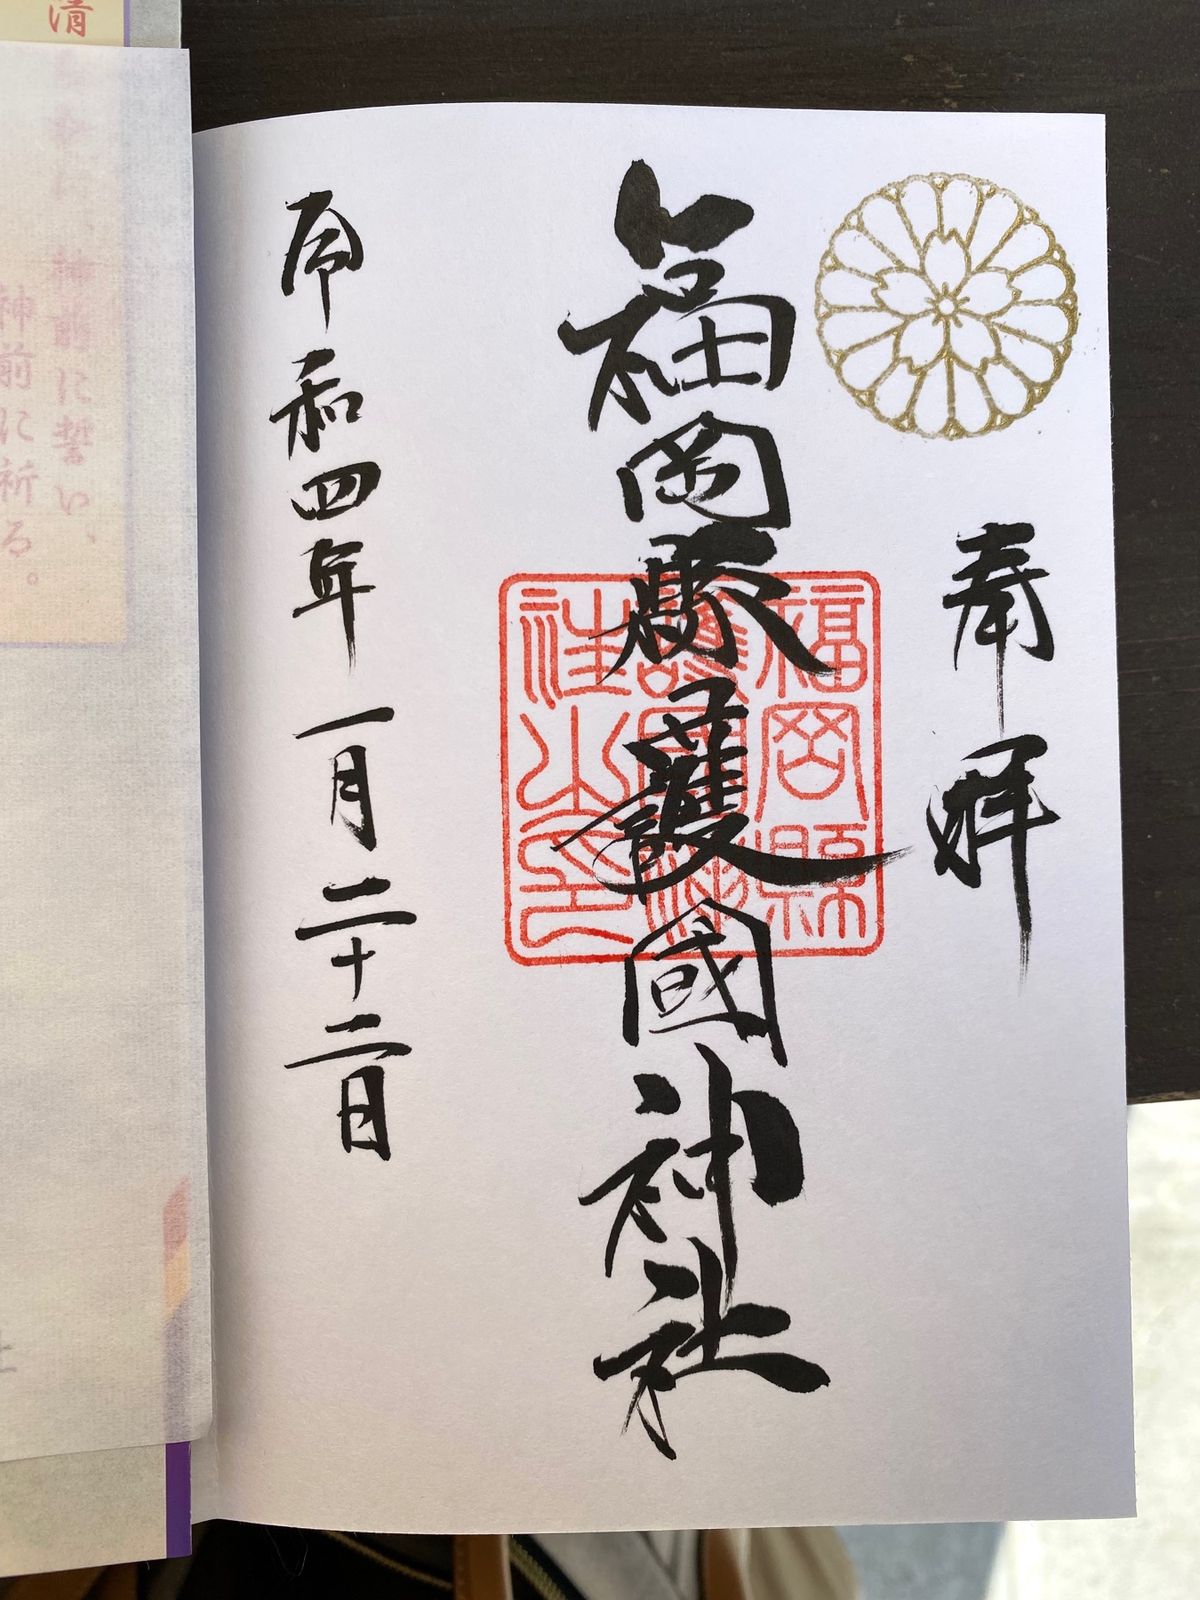 奉拝
福岡縣護國神社
福岡縣
護國神
社之印
令和四年一月二十二日
清
神前に誓い、
神前に祈る。